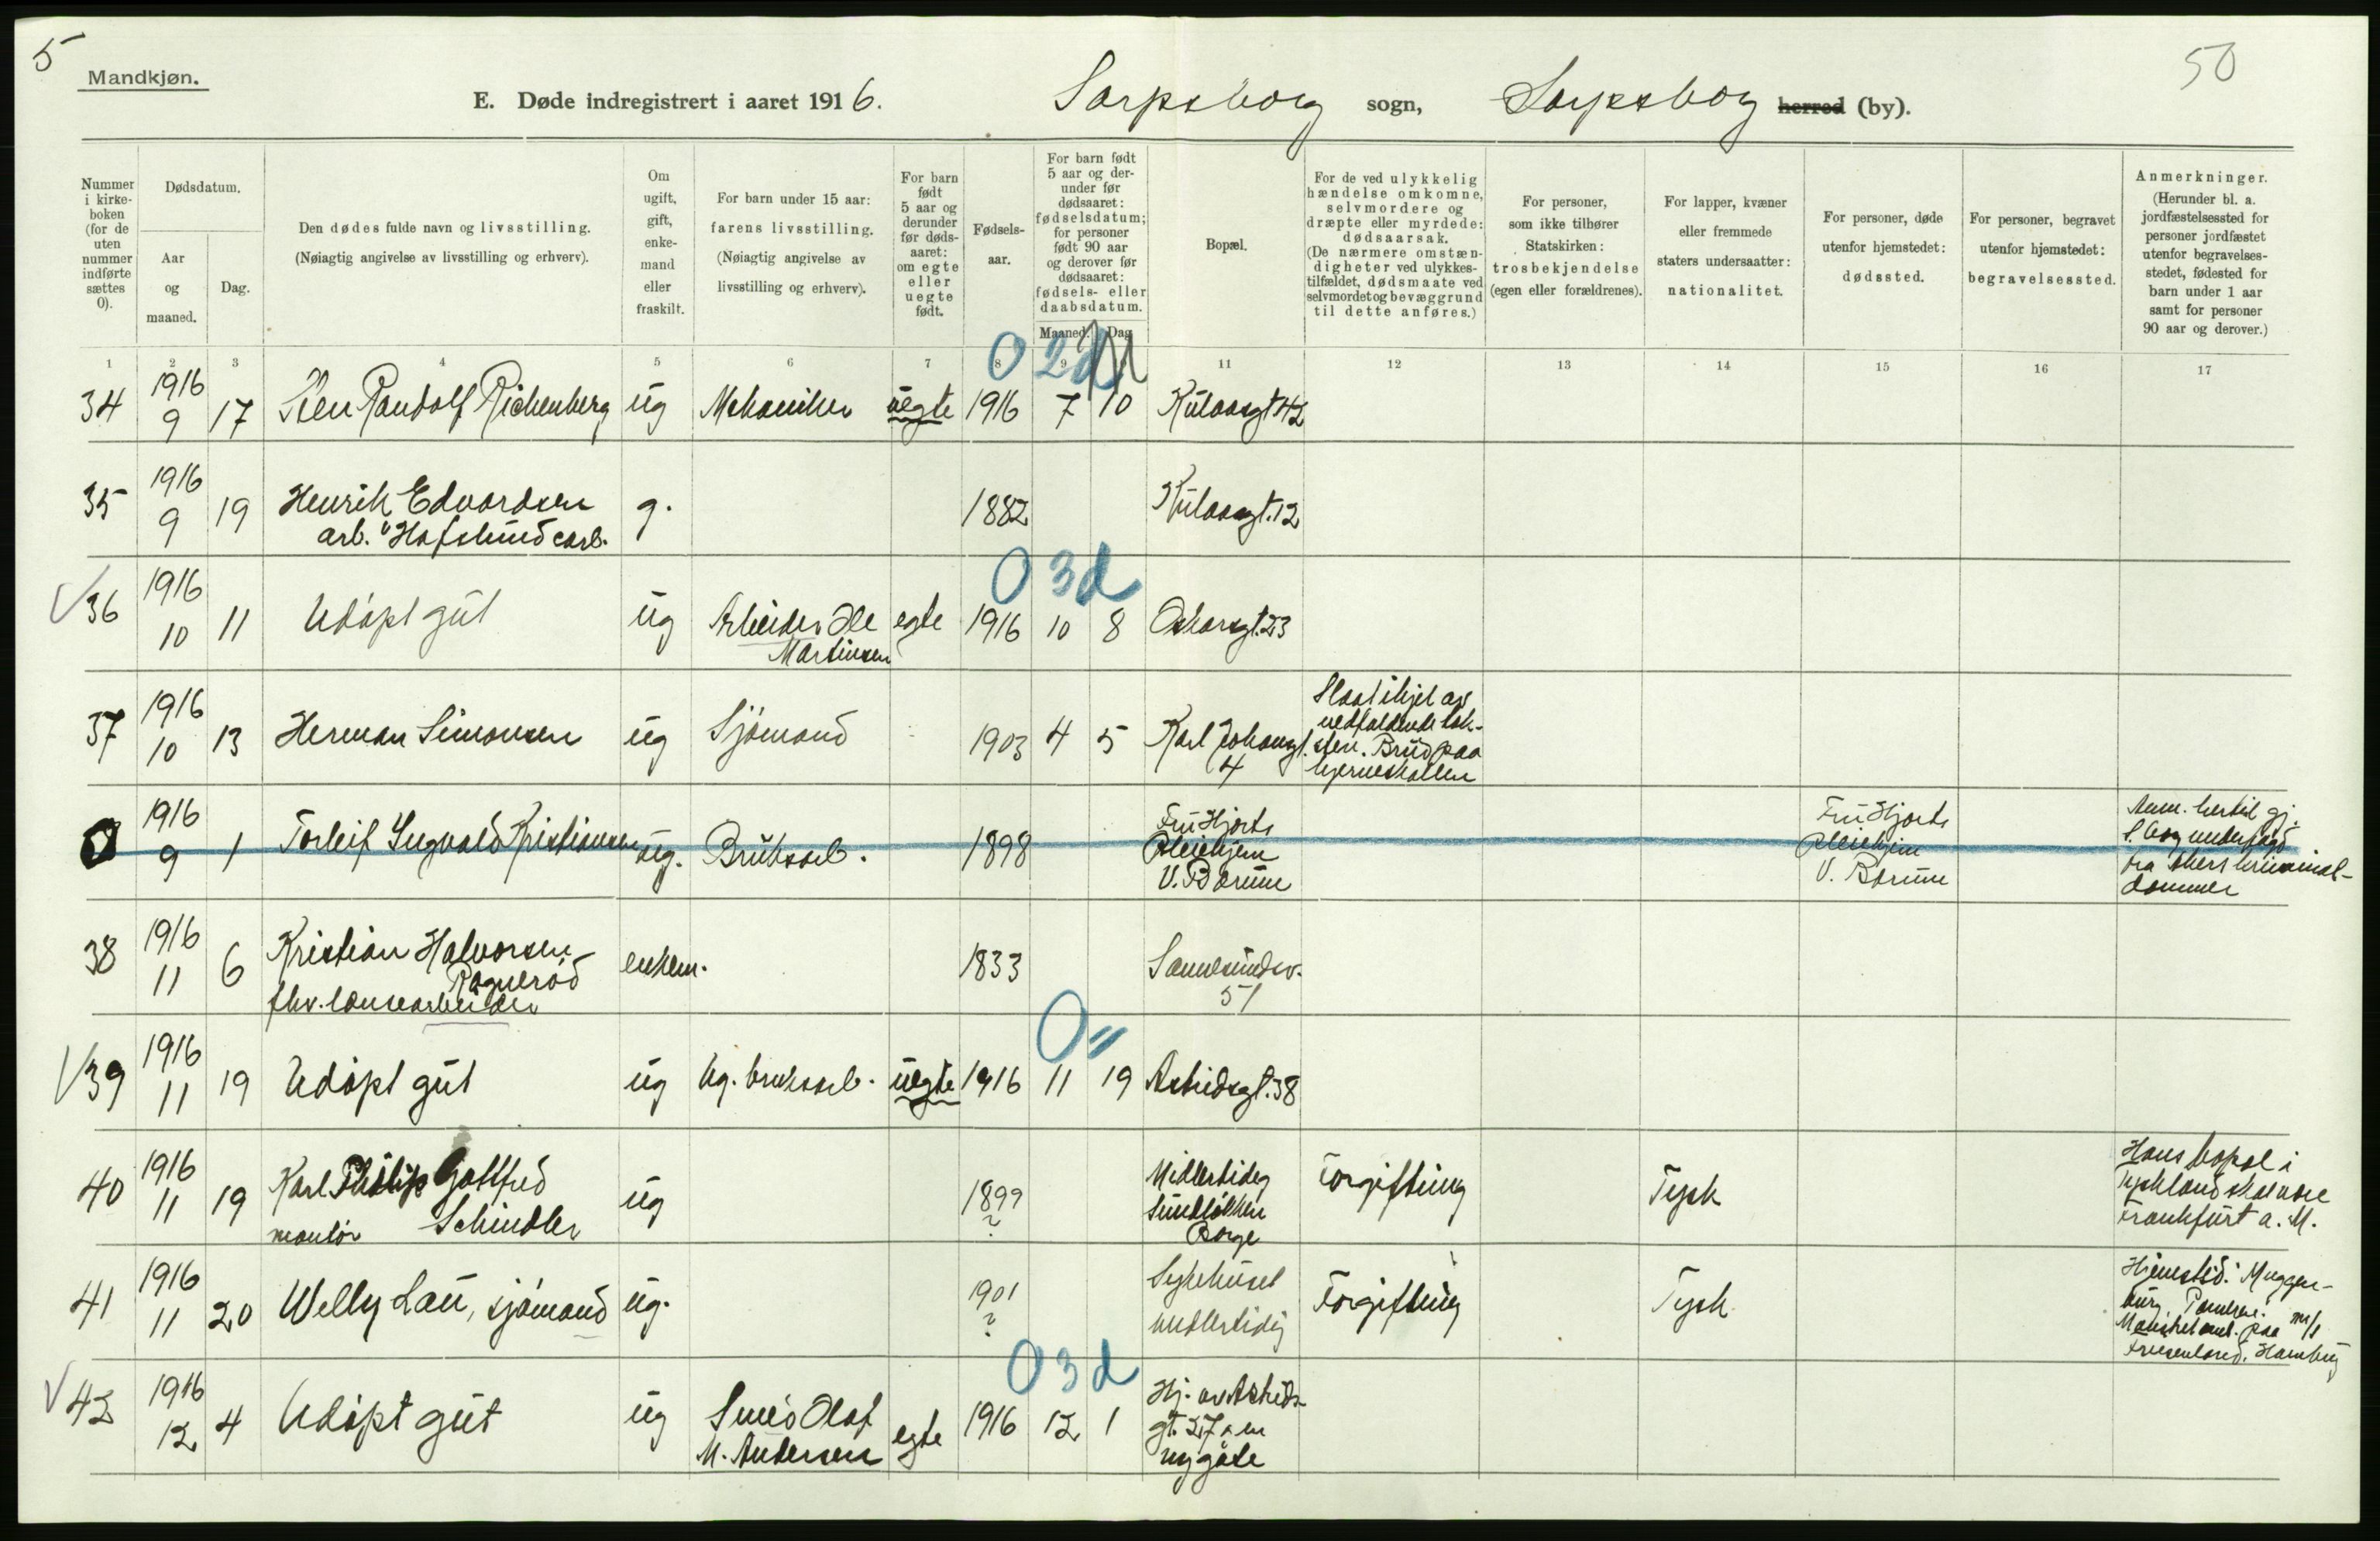 5
Mandkjøn.
50
E. Døde indregistrert i aaret 1916. Sarpsborg sogn, Sarpsborg herred (by).
Nummer i kirkeboken (for de uten nummer indførte sættes 0).
Dødsdatum.
Aar og maaned.
Dag.
Den dødes fulde navn og livsstilling.
(Nøiagtig angivelse av livsstilling og erhverv).
Om ugift, gift, enkemand eller fraskilt.
For barn under 15 aar: farens livsstilling.
(Nøiagtig angivelse av livsstilling og erhverv).
For barn født 5 aar og derunder før dødsaaret: om egte eller uegte født.
Fødselsaar.
For barn født 5 aar og derunder før dødsaaret: fødselsdatum; for personer født 90 aar og derover før dødsaaret: fødsels- eller daabsdatum.
Maaned. Dag.
Bopæl.
For de ved ulykkelig hændelse omkomne, selvmordere og dræpte eller myrdede: dødsaarsak.
(De nærmere omstændigheter ved ulykkestilfældet, dødsmaate ved selvmordet og bevæggrund til dette anføres.)
For personer, som ikke tilhører Statskirken: trosbekjendelse (egen eller forældrenes).
For lapper, kvæner eller fremmede staters undersaatter: nationalitet.
For personer, døde utenfor hjemstedet: dødssted.
For personer, begravet utenfor hjemstedet: begravelsessted.
Anmerkninger.
(Herunder bl. a. jordfæstelsessted for personer jordfæstet utenfor begravelsesstedet, fødested for barn under 1 aar samt for personer 90 aar og derover.)
1 2 3 4 5 6 7 8 9 11 12 13 14 15 16 17
0 2d
34 1916 9 17 Randolf Richenberg ug Mekaniker uegte 1916 7 10 Kulaasgt 42
35 1916 9 19 Henrik Edvardsen g. 1882 Kulaasgt. 12
arb. "Hafslund carb.
0 3d
36 1916 10 11 Udøpt gut ug Arbeider Ole egte 1916 10 8 Oskarsgt. 23
Martinsen
37 1916 10 13 Herman Simonsen ug Sjømand 1903 4 5 Karl Johansgt. 4
Slaat ihjel av
nedfaldende tak-
sten. Brud paa
hjerneskallen
0 1916 9 1 Torleif Ingvald Kristiansen ug. Bruksarb. 1898
Fru Hjorts
Pleiehjem
V. Bærum
Fru Hjorts
Pleiehjem
V. Bærum
Anm. hertil gj.
fra Akers kriminal-
dommer
38 1916 11 6 Kristian Halvorsen enkem. 1833 Sannesundsv.
Ragnerød 51
fhv. lænsearbeider
0 "
39 1916 11 19 Udøpt gut ug Ug. bruksarb. uegte 1916 11 19 Astridsgt. 38
40 1916 11 19 Karl Philip Gottfred ug 1899 ?
montør Schindler
Midlertidig
Sundløkken
Borge
Forgiftning Tysk
Hans bopæl i
Tyskland skal være
Frankfurt a. M.
41 1916 11 20 Welly Lau, sjømand ug. 1901 ?
Sykehuset
midlertidig
Forgiftning Tysk
Hjemsted: Muggen-
burg, Pommern.
paa m/s
Friesenland, Hamburg
0 3d
42 1916 12 4 Udøpt gut ug Smed Olaf egte 1916 12 1
M. Andersen
Hj. av Astrids-
gt. 27 en
ny gate